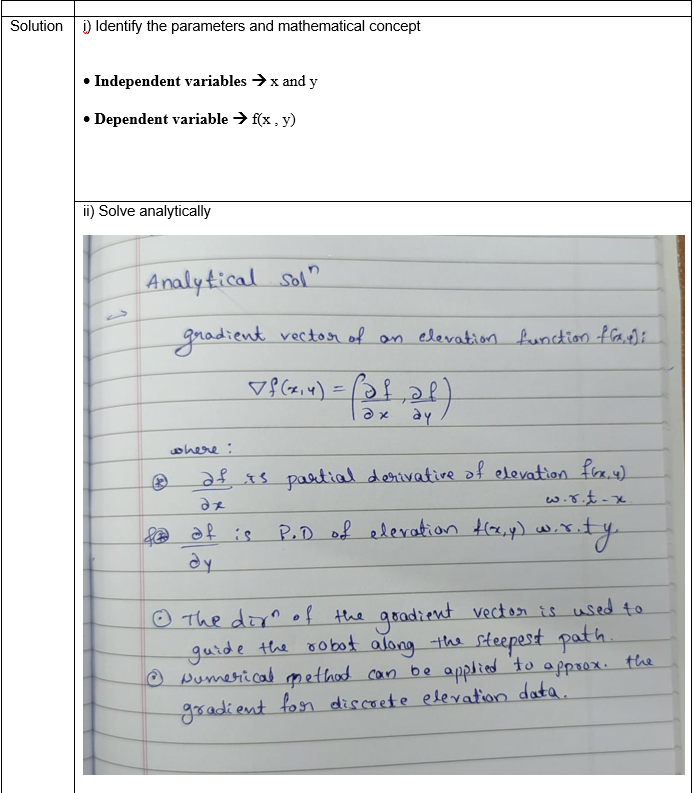 Solution
i) Identify the parameters and mathematical concept
• Independent variables → x and y
• Dependent variable → f(x , y)
ii) Solve analytically
Analytical solⁿ
⇒
gradient vector of an elevation function f(x,y):
∇f(x,y) = (∂f/∂x, ∂f/∂y)
where :
⊛ ∂f/∂x is partial derivative of elevation f(x,y)
w.r.t - x
⊛ ∂f/∂y is P.D of elevation f(x,y) w.r.t y.
⊙ The dirⁿ of the gradient vector is used to
guide the robot along the steepest path.
⊙ Numerical method can be applied to approx. the
gradient for discrete elevation data.